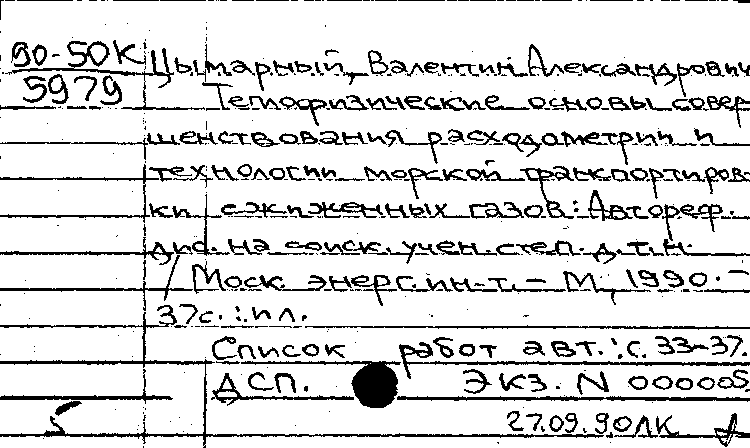 90-50К
5979
Цымарный, Валентин Александрович
Теплофизические основы совер
шенствования расходометрии и
технологии морской транспортиров
ки сжиженных газов: Автореф.
дис. на соиск. учен. степ. д. т. н.
/ Моск. энерг. ин-т. - М., 1990. -
37с. : ил.
Список работ авт.: с. 33-37.
ДСП. Экз. N 000005
27.09.90ЛК
5